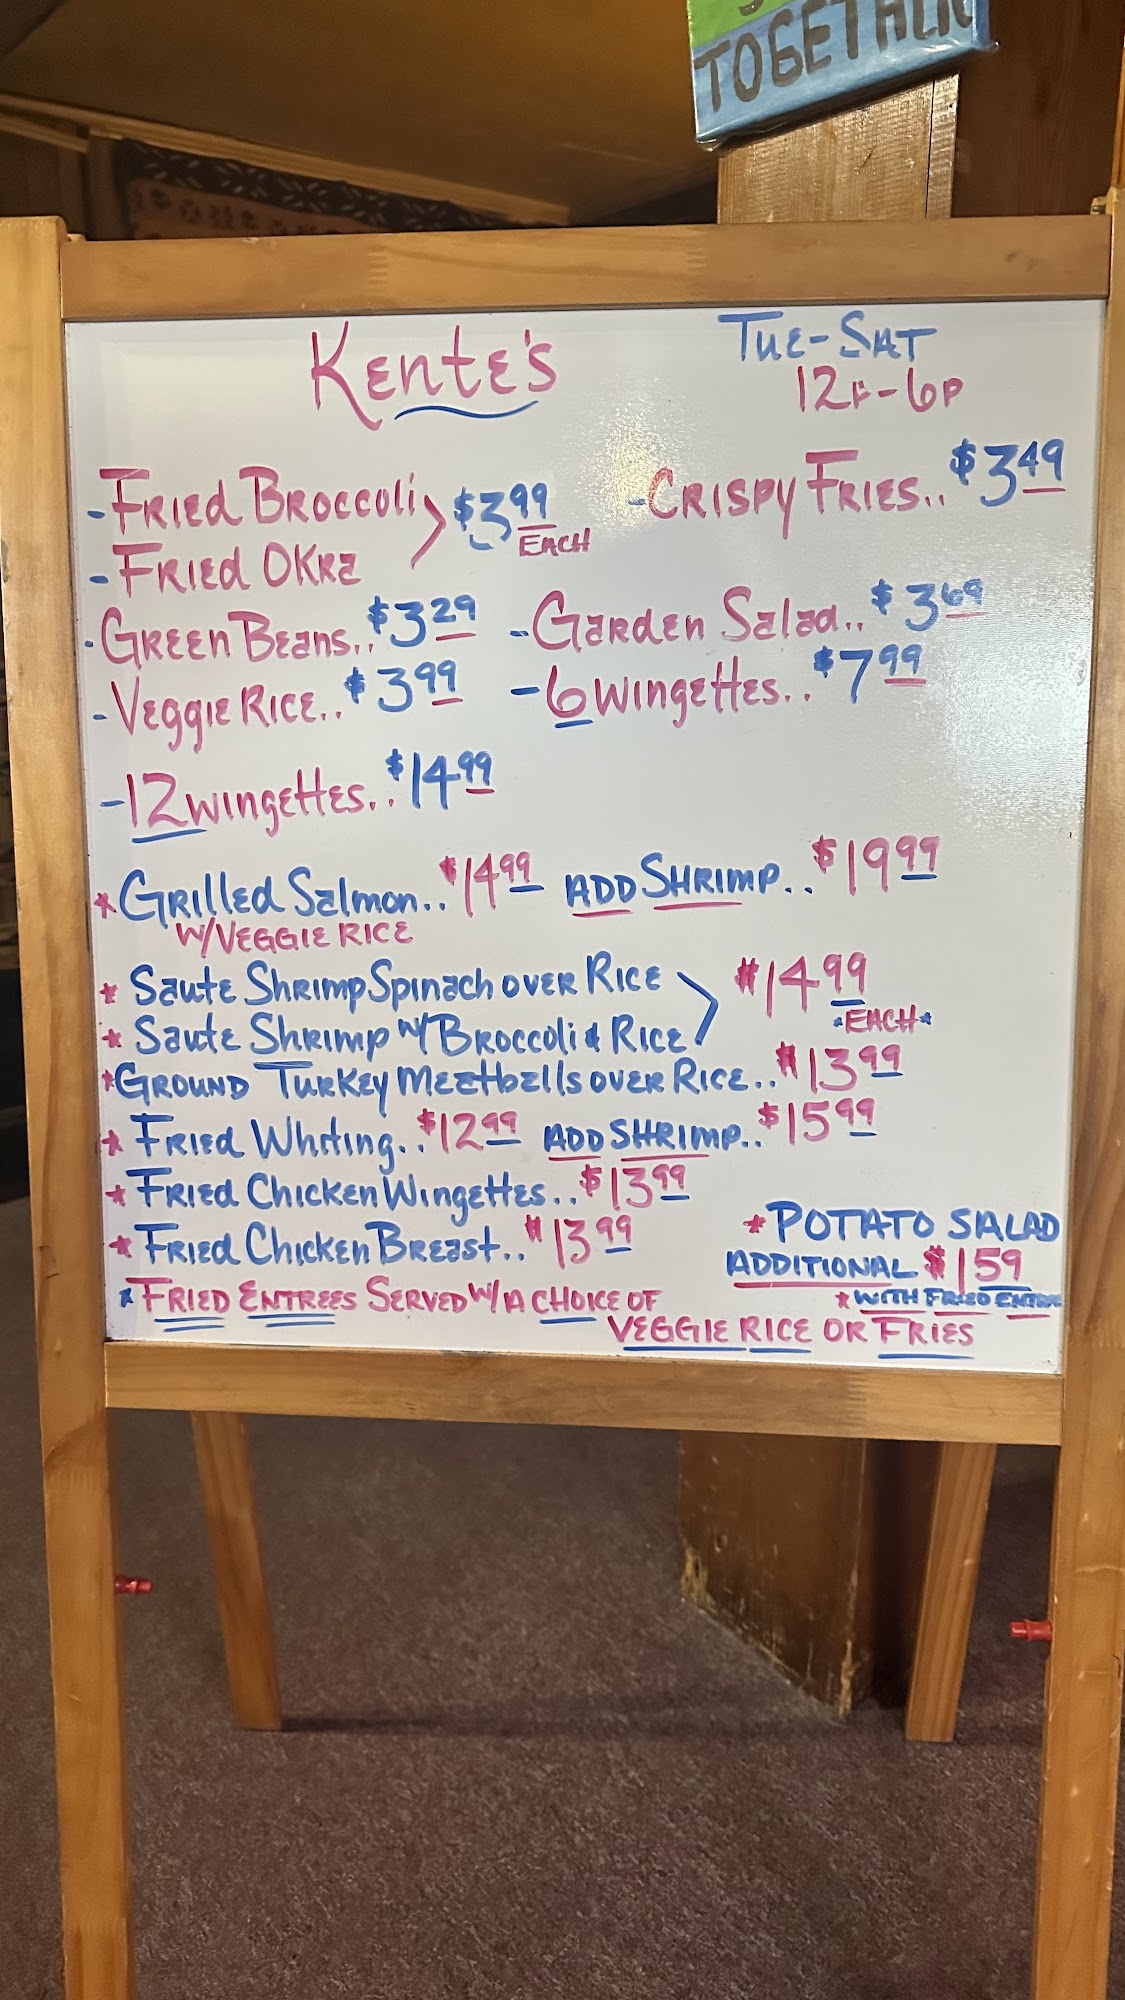 TOGETHER
Kente's
Tue-Sat
12P-6P
-Fried Broccoli
-Fried Okra
$3.99
Each
-Crispy Fries.. $3.49
-Green Beans.. $3.29
-Garden Salad.. $3.69
-Veggie Rice.. $3.99
-6 Wingettes.. $7.99
-12 Wingettes.. $14.99
*Grilled Salmon.. $14.99 ADD SHRIMP.. $19.99
W/VEGGIE RICE
* Saute Shrimp Spinach over Rice
* Saute Shrimp w/Broccoli & Rice
$14.99
*EACH*
*GROUND Turkey Meatballs over Rice.. $13.99
* Fried Whiting.. $12.99 ADD SHRIMP.. $15.99
* Fried Chicken Wingettes.. $13.99
* Fried Chicken Breast.. $13.99
*POTATO SALAD
ADDITIONAL $1.59
*WITH FRIED ENTREE
*FRIED ENTREES SERVED W/A CHOICE OF
VEGGIE RICE OR FRIES